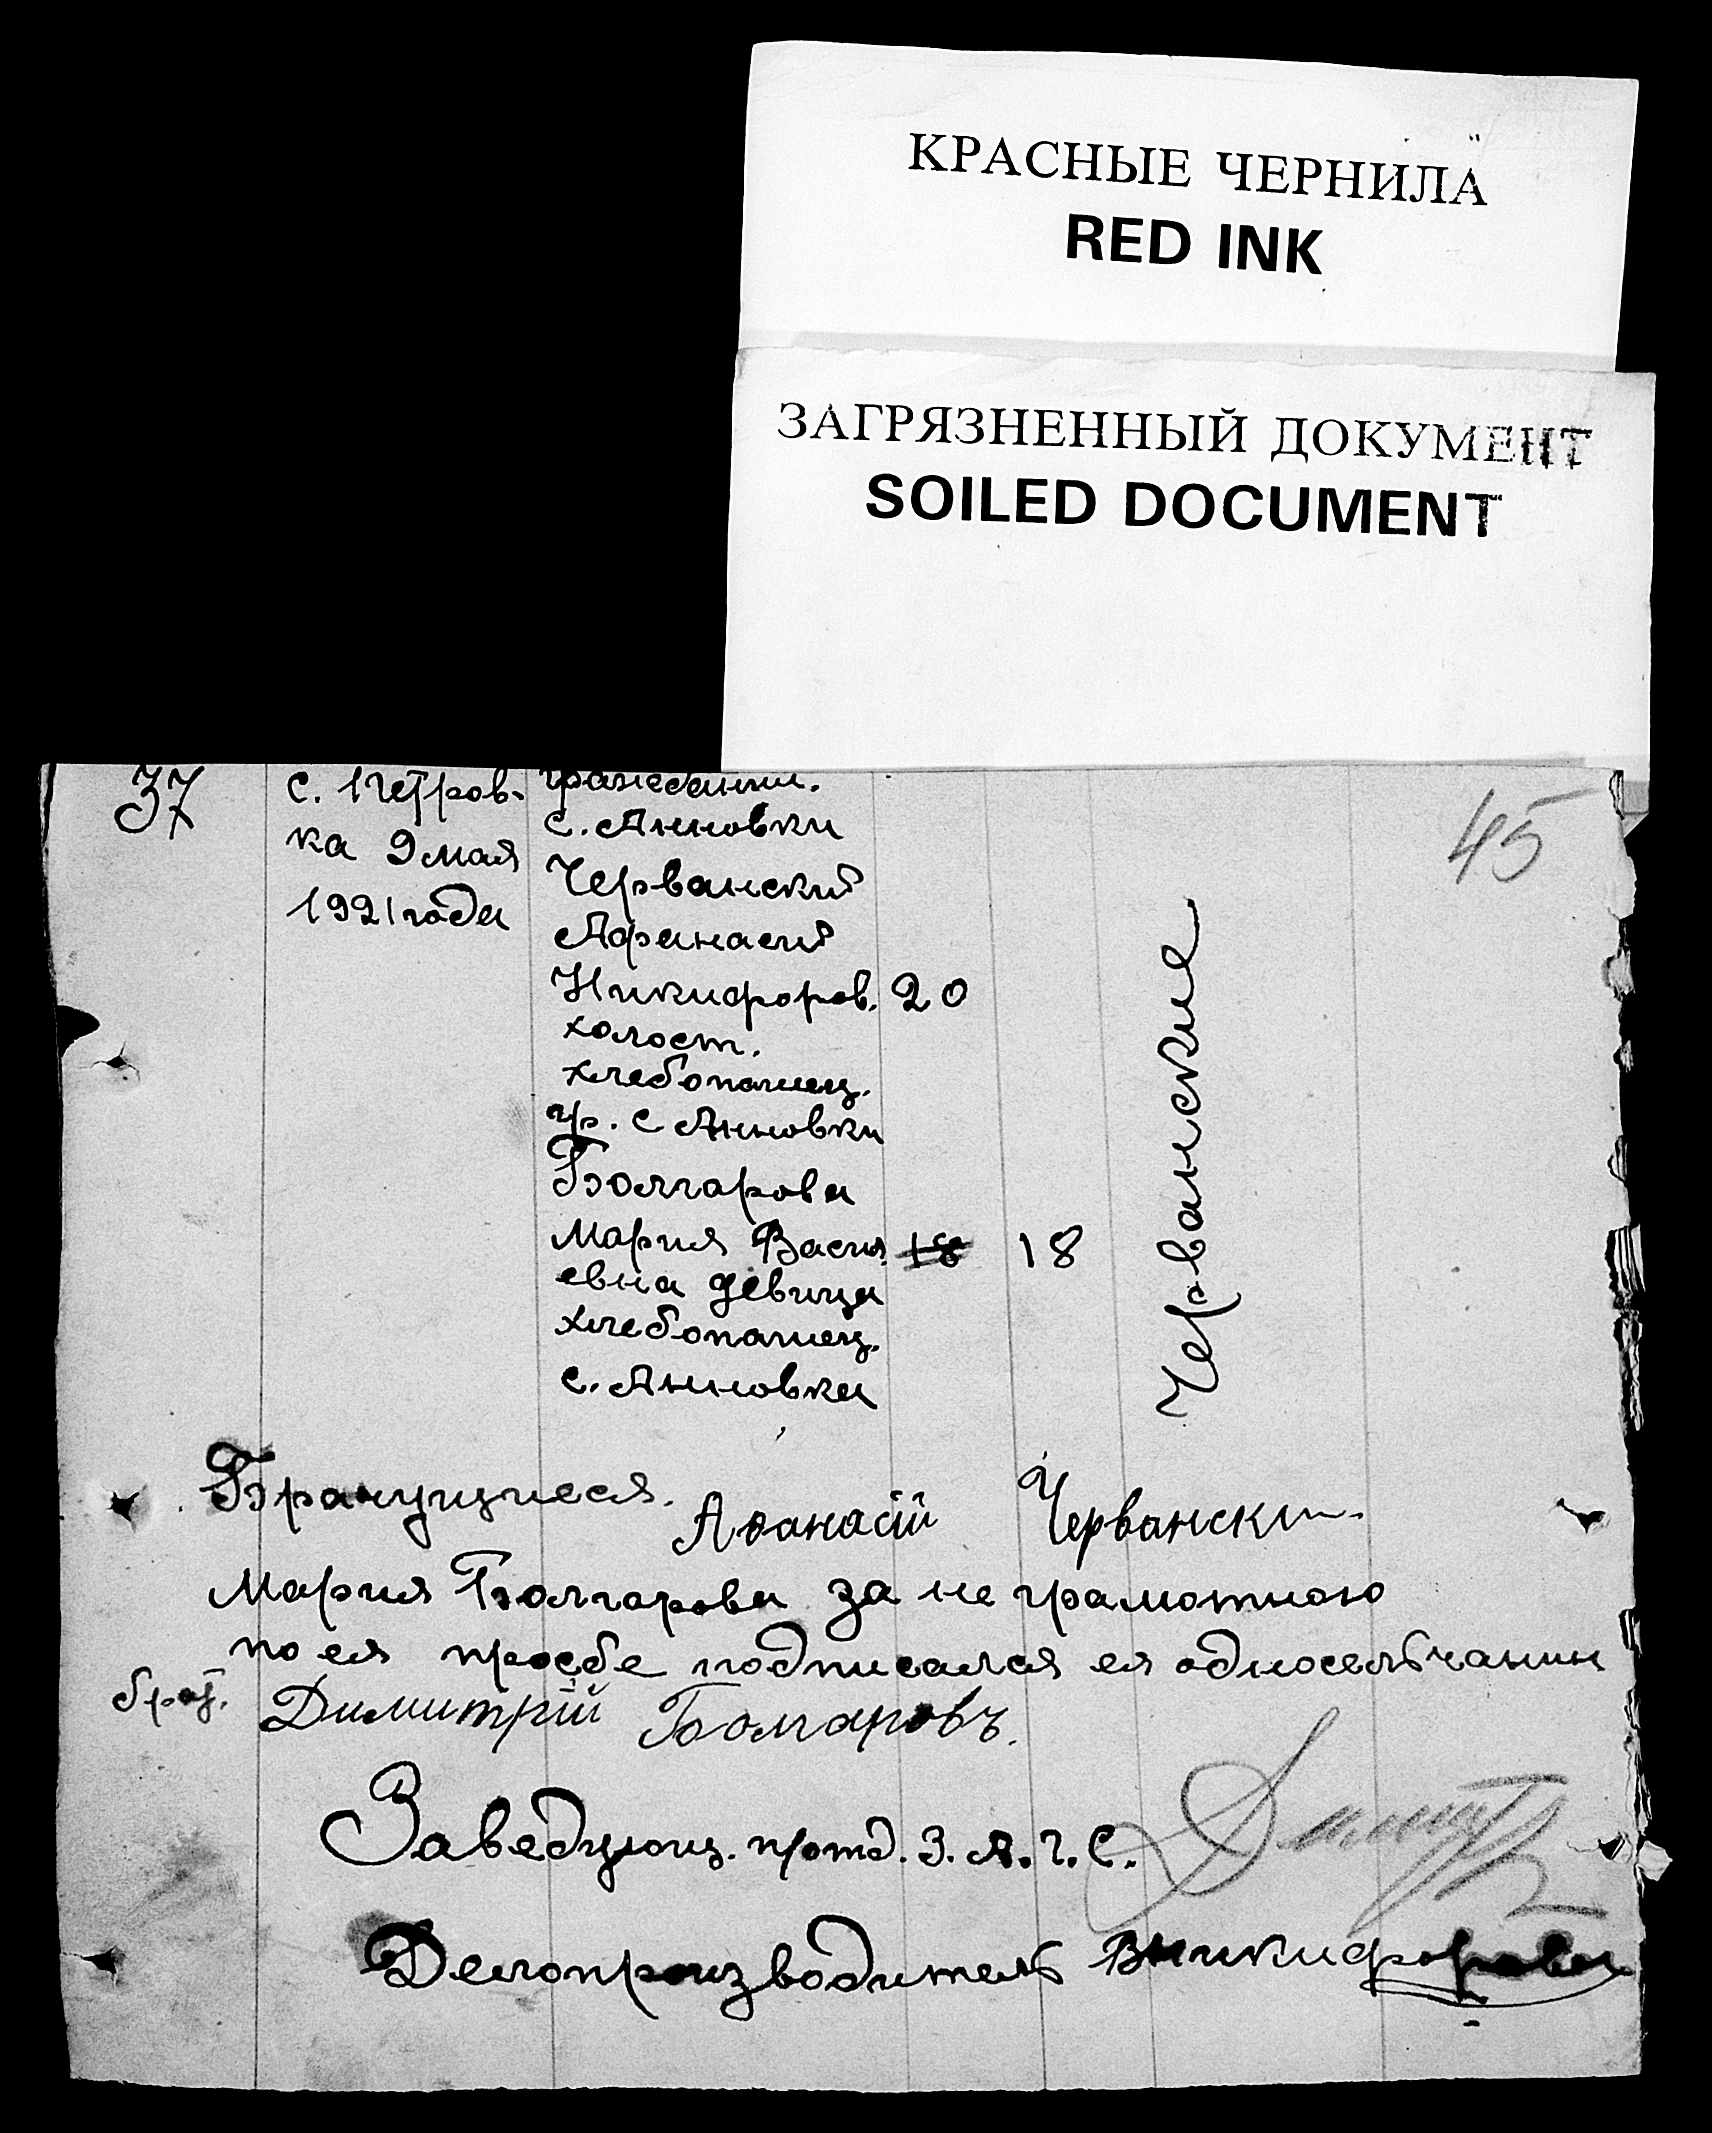 КРАСНЫЕ ЧЕРНИЛА
RED INK
ЗАГРЯЗНЕННЫЙ ДОКУМЕНТ
SOILED DOCUMENT
45
37
с. Петров-
ка 9 мая
1921 года
граждании.
с. Анновки
Черванский
Афанасий
Никифоров. 20
холост.
хлебопашец.
гр. с Анновки
Болгарова
Мария Васил. 18 18
евна девица
хлебопашец.
с. Анновка
Черванские
Брачущиеся.
Афанасій Червански
Мария Болгарова за не грамотною
по ея просбе подписался ея односельчанин
брат. Димитрій Болгаровъ.
Заведующ. протд. З. А. Г. С.
Делопроизводитель ВНикифорова